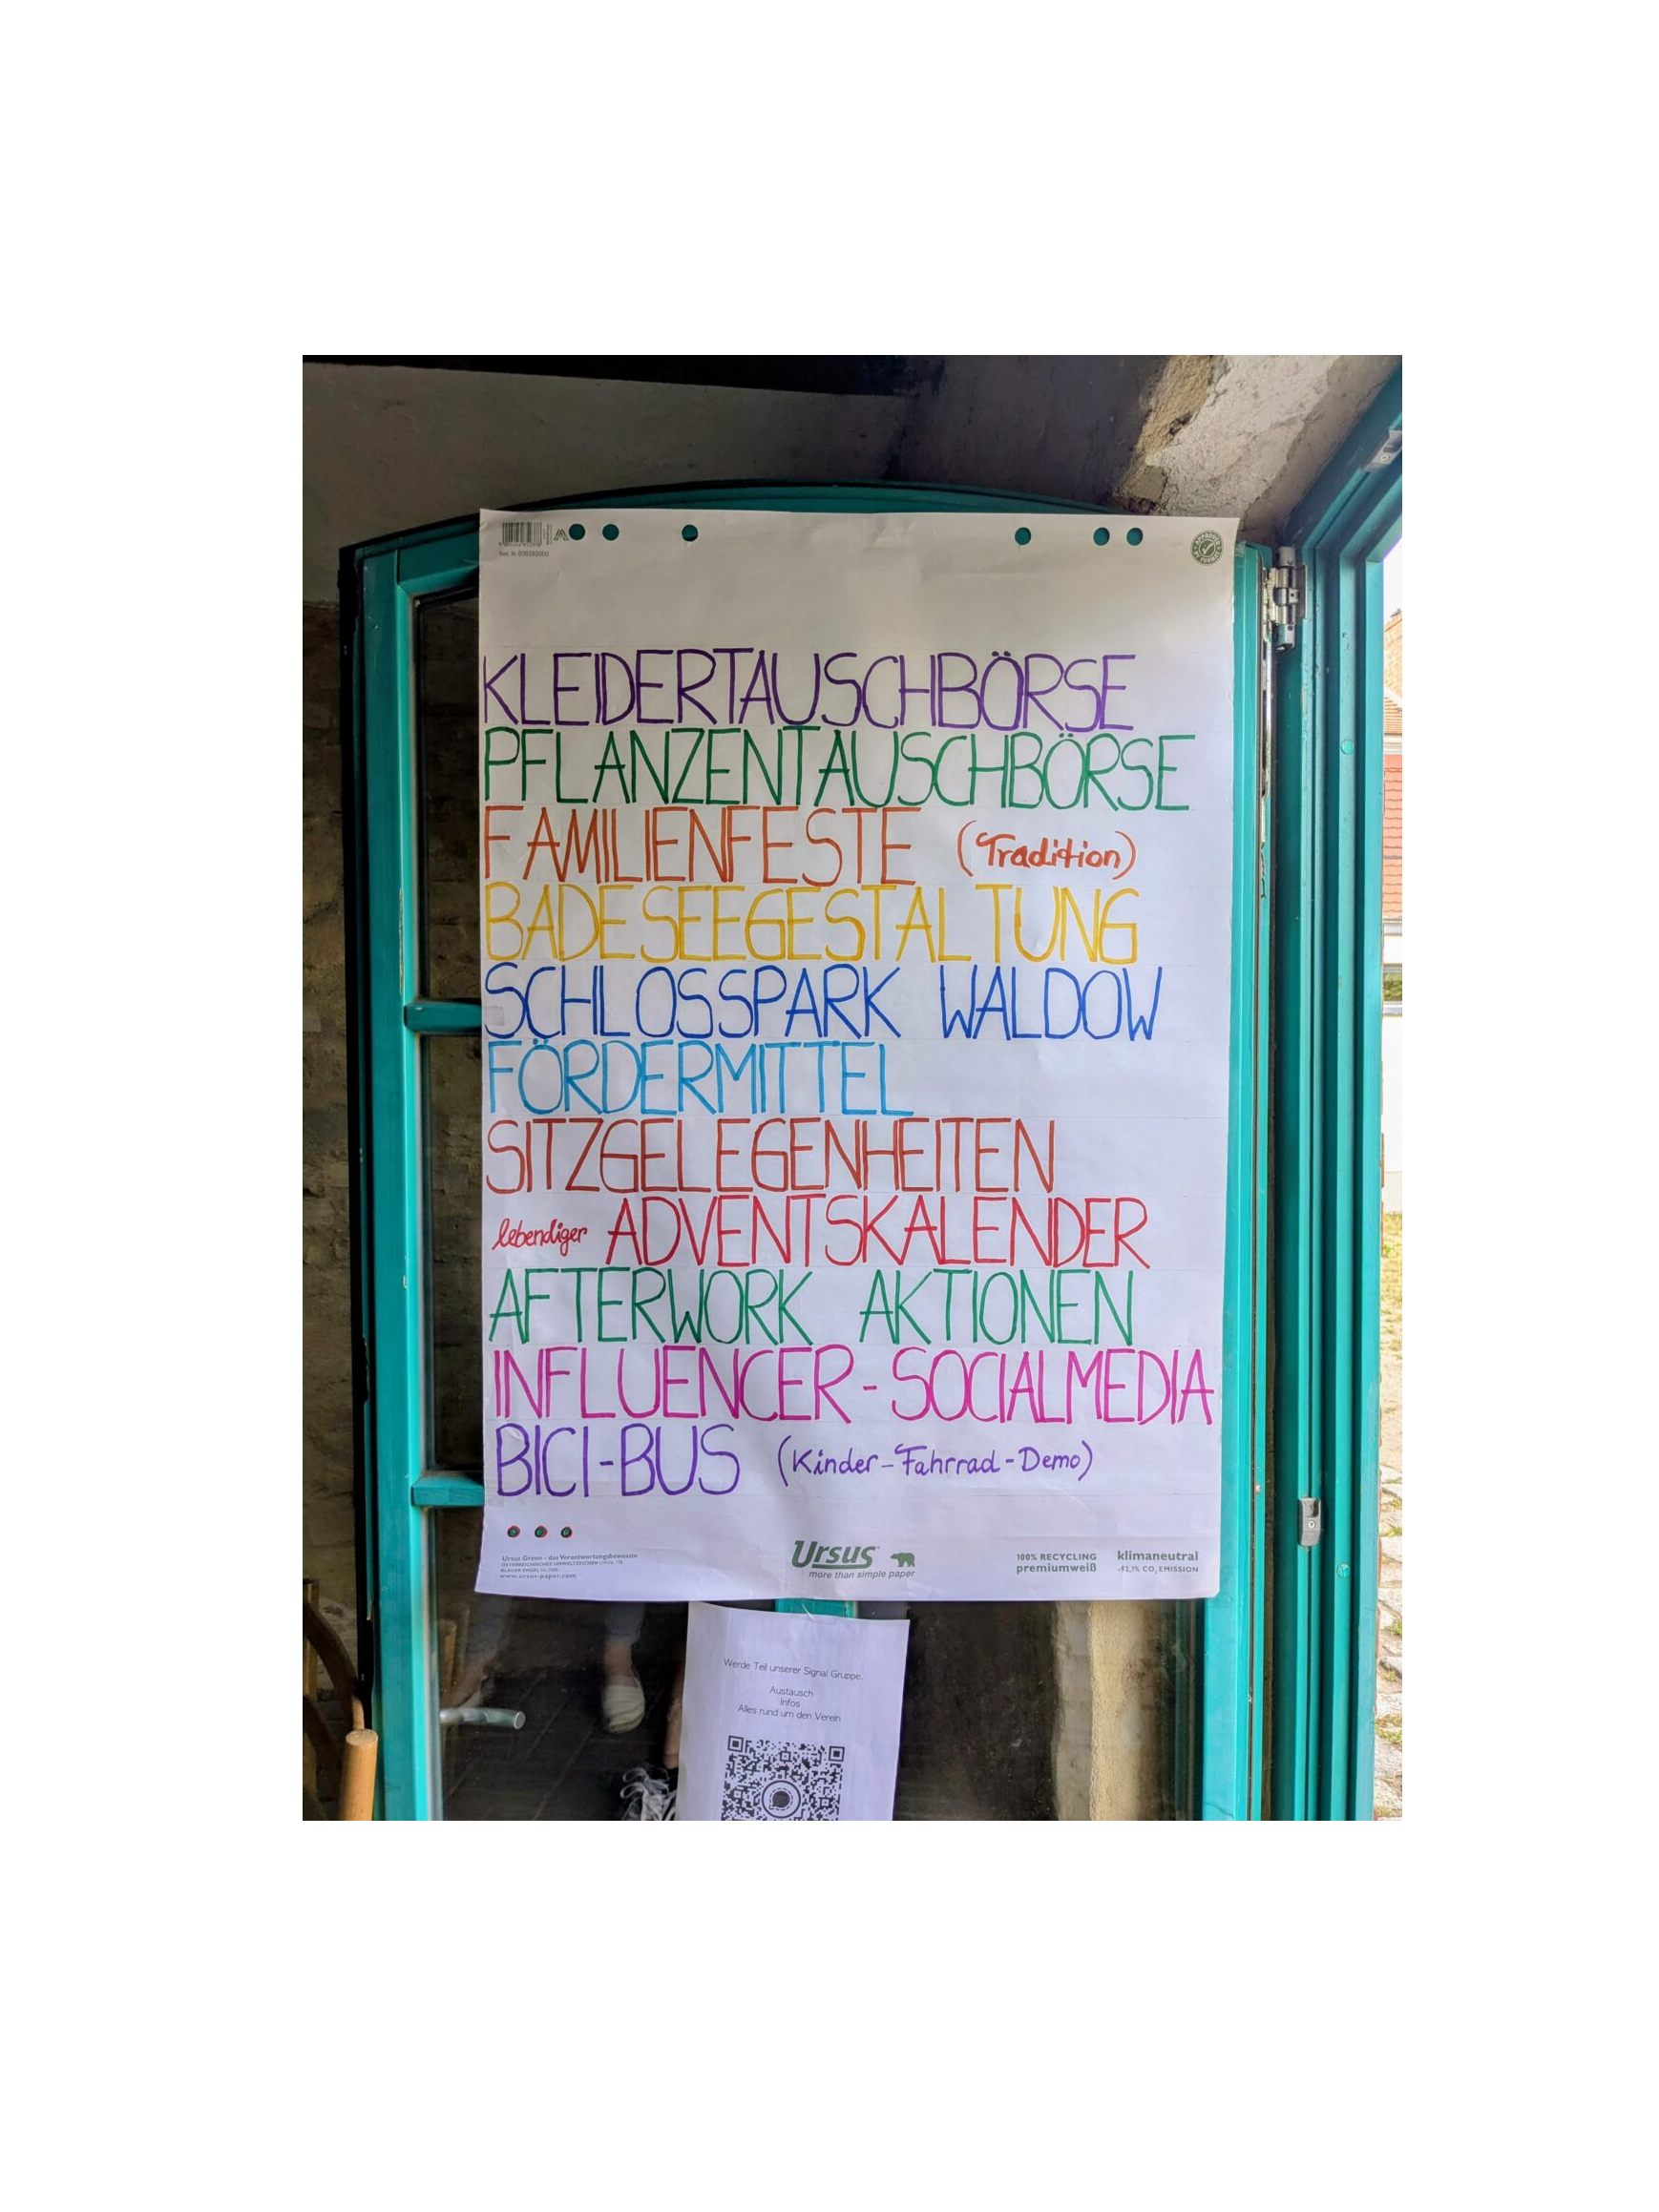 KLEIDERTAUSCHBÖRSE
PFLANZENTAUSCHBÖRSE
FAMILIENFESTE (Tradition)
BADESEEGESTALTUNG
SCHLOSSPARK WALDOW
FÖRDERMITTEL
SITZGELEGENHEITEN
lebendiger ADVENTSKALENDER
AFTERWORK AKTIONEN
INFLUENCER-SOCIALMEDIA
BICI-BUS (Kinder-Fahrrad-Demo)
Ursus Green - das Verantwortungsbewusste
ÖSTERREICHISCHES UMWELTZEICHEN
www.ursus-paper.com
Ursus
more than simple paper
100% RECYCLING
premiumweiß
klimaneutral
-92,1% CO₂ EMISSION
Werde Teil unserer Signal Gruppe.
Austausch
Infos
Alles rund um den Verein